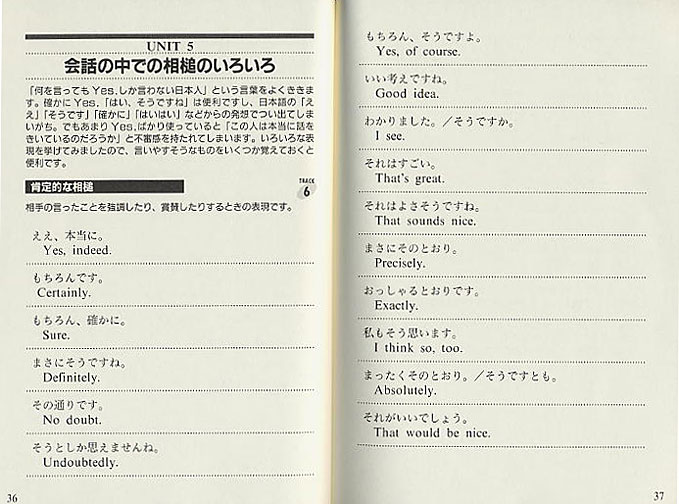 UNIT 5
会話の中での相槌のいろいろ
「何を言ってもYes.しか言わない日本人」という言葉をよくききま
す。確かにYes.「はい、そうですね」は便利ですし、日本語の「え
え」「そうです」「確かに」「はいはい」などからの発想でつい出てしま
いがち。でもあまりYes.ばかり使っていると「この人は本当に話を
きいているのだろうか」と不審感を持たれてしまいます。いろいろな表
現を挙げてみましたので、言いやすそうなものをいくつか覚えておくと
便利です。
肯定的な相槌
TRACK
6
相手の言ったことを強調したり、賞賛したりするときの表現です。
ええ、本当に。
Yes, indeed.
もちろんです。
Certainly.
もちろん、確かに。
Sure.
まさにそうですね。
Definitely.
その通りです。
No doubt.
そうとしか思えませんね。
Undoubtedly.
36
もちろん、そうですよ。
Yes, of course.
いい考えですね。
Good idea.
わかりました。／そうですか。
I see.
それはすごい。
That's great.
それはよさそうですね。
That sounds nice.
まさにそのとおり。
Precisely.
おっしゃるとおりです。
Exactly.
私もそう思います。
I think so, too.
まったくそのとおり。／そうですとも。
Absolutely.
それがいいでしょう。
That would be nice.
37